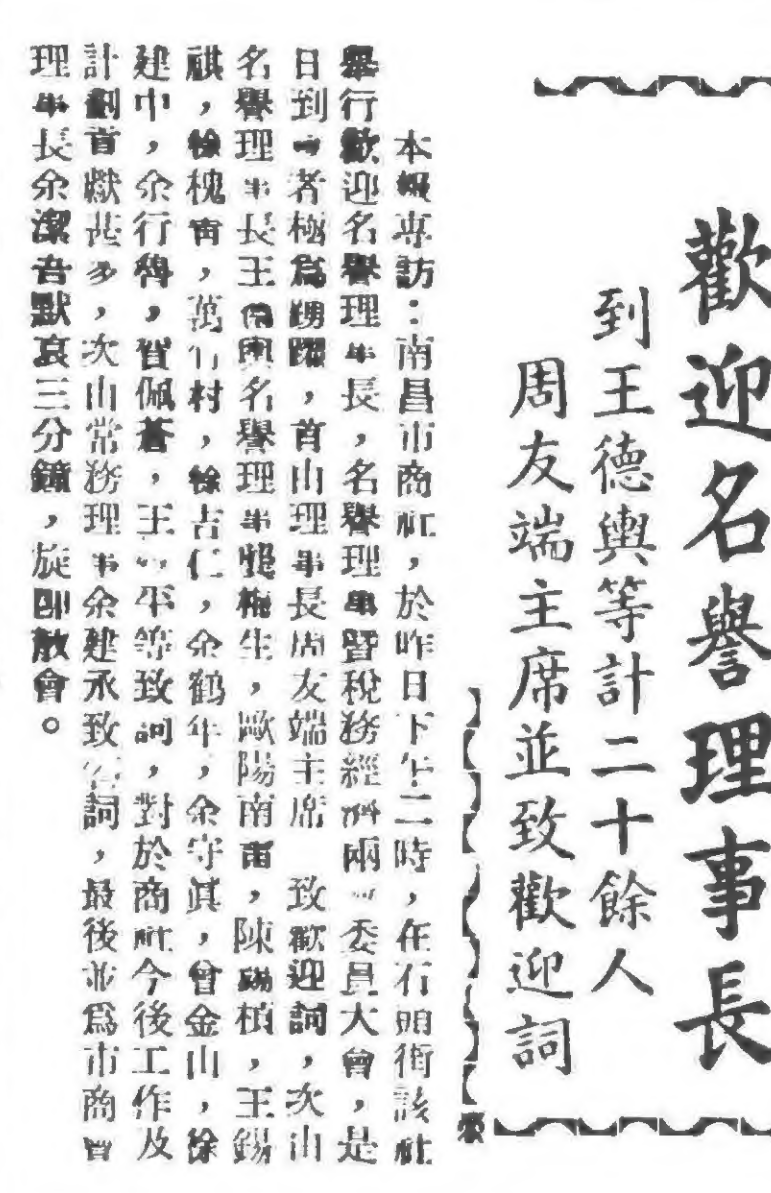 歡迎名譽理事長
到王德輿等計二十餘人
周友端主席並致歡迎詞
本報專訪：南昌市商社，於昨日下午二時，在石頭街該社
舉行歡迎名譽理事長，名譽理事暨稅務經濟兩委員大會，是
日到者極爲踴躍，首由理事長周友端主席 致歡迎詞，次由
名譽理事長王德輿名譽理事龔梅生，歐陽南甫，陳錫楨，王錫
祺，徐槐甫，萬竹村，徐吉仁，余鶴年，余守眞，曾金山，徐
建中，余行魯，賀佩蒼，王平等致詞，對於商社今後工作及
計劃首獻甚多，次由常務理事余建承致答詞，最後並爲市商會
理事長余潔吾默哀三分鐘，旋即散會。